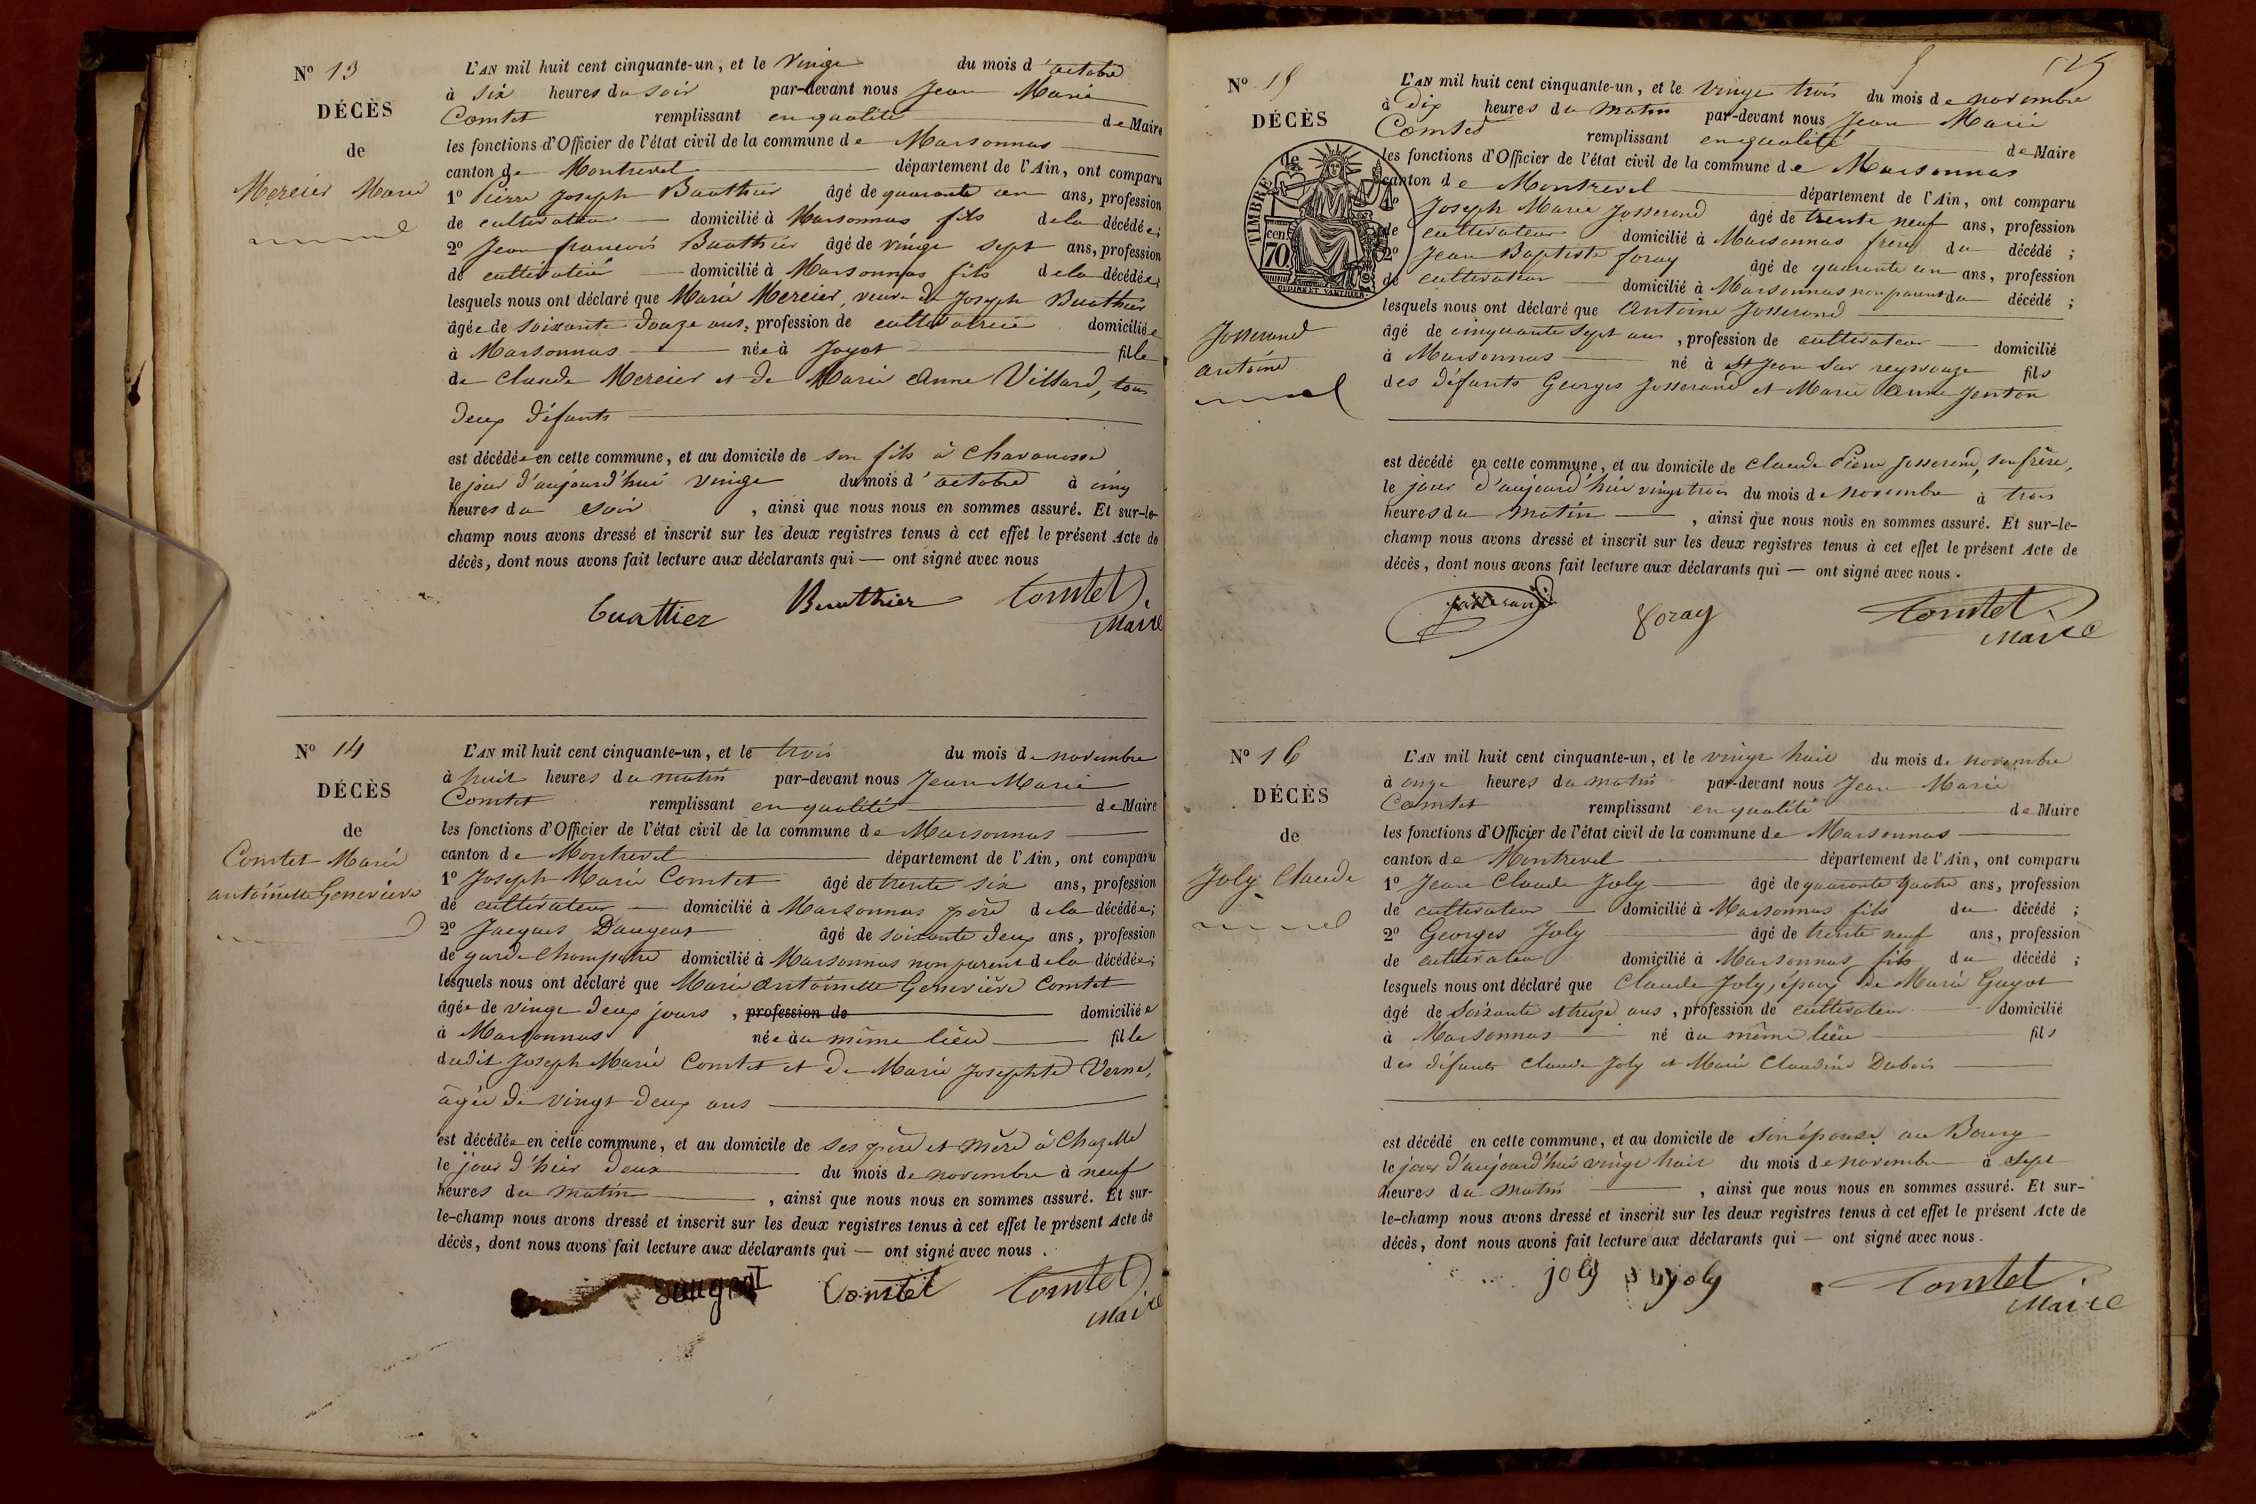 N° 13
DÉCÈS
de
Mercier Marie
L'AN mil huit cent cinquante-un, et le vingt du mois d'octobre
à six heures du soir par-devant nous Jean Marie
Comtet remplissant en qualité de Maire
les fonctions d'Officier de l'état civil de la commune de Marsonnas
canton de Montrevel département de l'Ain, ont comparu
1° Pierre Joseph Buathier âgé de quarante un ans, profession
de cultivateur domicilié à Marsonnas fils de la décédée;
2° Jean francois Buathier âgé de vingt sept ans, profession
de cultivateur domicilié à Marsonnas fils de la décédée;
lesquels nous ont déclaré que Marie Mercier, veuve de Joseph Buathier
âgée de soixante douze ans, profession de cultivatrice domiciliée
à Marsonnas née à Jayat fille
de Claude Mercier et de Marie Anne Villard, tous
deux défunts
est décédée en cette commune, et au domicile de son fils à Chavanosse
le jour d'aujourd'hui vingt du mois d'octobre à cinq
heures du soir, ainsi que nous nous en sommes assuré. Et sur-le-
champ nous avons dressé et inscrit sur les deux registres tenus à cet effet le présent Acte de
décès, dont nous avons fait lecture aux déclarants qui — ont signé avec nous
buathier Buathier Comtet
Maire
N° 14
DÉCÈS
de
Comtet Marie
antoinette Geneviève
L'AN mil huit cent cinquante-un, et le trois du mois de novembre
à huit heures du matin par-devant nous Jean Marie
Comtet remplissant en qualité de Maire
les fonctions d'Officier de l'état civil de la commune de Marsonnas
canton de Montrevel département de l'Ain, ont comparu
1° Joseph Marie Comtet âgé de trente six ans, profession
de cultivateur domicilié à Marsonnas père de la décédée;
2° Jacques Daugeat âgé de soixante deux ans, profession
de garde champetre domicilié à Marsonnas non parent de la décédée;
lesquels nous ont déclaré que Marie antoinette Geneviève Comtet
âgée de vingt deux jours, profession de domiciliée
à Marsonnas née au même lieu fille
dudit Joseph Marie Comtet et de Marie Josephte Verne,
âgée de vingt deux ans
est décédée en cette commune, et au domicile de ses père et mère à Chazelle
le jour d'hier deux du mois de novembre à neuf
heures du matin, ainsi que nous nous en sommes assuré. Et sur-
le-champ nous avons dressé et inscrit sur les deux registres tenus à cet effet le présent Acte de
décès, dont nous avons fait lecture aux déclarants qui — ont signé avec nous.
Comtet Comtet
Maire
N° 15
DÉCÈS
de
TIMBRE
70 cen
Josserand
antoine
L'AN mil huit cent cinquante-un, et le vingt trois du mois de novembre
à dix heures du matin par-devant nous Jean Marie
Comtet remplissant en qualité de Maire
les fonctions d'Officier de l'état civil de la commune de Marsonnas
canton de Montrevel département de l'Ain, ont comparu
Joseph Marie Josserand âgé de trente neuf ans, profession
de cultivateur domicilié à Marsonnas frère du décédé;
2° Jean Baptiste foray âgé de quarante un ans, profession
de cultivateur domicilié à Marsonnas non parent du décédé;
lesquels nous ont déclaré que Antoine Josserand
âgé de cinquante sept ans, profession de cultivateur domicilié
à Marsonnas né à St Jean sur reyssouze fils
des défunts Georges Josserand et Marie Anne Jenton
est décédé en cette commune, et au domicile de Claude Pierre Josserand, son frère,
le jour d'aujourd'hui vingt trois du mois de novembre à trois
heures du matin, ainsi que nous nous en sommes assuré. Et sur-le-
champ nous avons dressé et inscrit sur les deux registres tenus à cet effet le présent Acte de
décès, dont nous avons fait lecture aux déclarants qui — ont signé avec nous.
Josserand foray Comtet
Maire
N° 16
DÉCÈS
de
Joly Claude
L'AN mil huit cent cinquante-un, et le vingt huit du mois de novembre
à onze heures du matin par-devant nous Jean Marie
Comtet remplissant en qualité de Maire
les fonctions d'Officier de l'état civil de la commune de Marsonnas
canton de Montrevel département de l'Ain, ont comparu
1° Jean Claude Joly âgé de quarante quatre ans, profession
de cultivateur domicilié à Marsonnas fils du décédé;
2° Georges Joly âgé de trente neuf ans, profession
de cultivateur domicilié à Marsonnas fils du décédé;
lesquels nous ont déclaré que Claude Joly, époux de Marie Guyot
âgé de soixante et treize ans, profession de cultivateur domicilié
à Marsonnas né au même lieu fils
des défunts Claude Joly et Marie Claudine Dubois
est décédé en cette commune, et au domicile de son épouse au Bourg
le jour d'aujourd'hui vingt huit du mois de novembre à sept
heures du matin, ainsi que nous nous en sommes assuré. Et sur-
le-champ nous avons dressé et inscrit sur les deux registres tenus à cet effet le présent Acte de
décès, dont nous avons fait lecture aux déclarants qui — ont signé avec nous.
joly joly Comtet
Maire